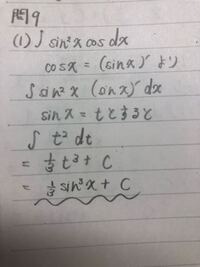 問9
(1) ∫ sin²x cos dx
cosx = (sinx)′ より
∫ sin²x (sinx)′ dx
sinx = t とおると
∫ t² dt
= 1/3 t³ + C
= 1/3 sin³x + C